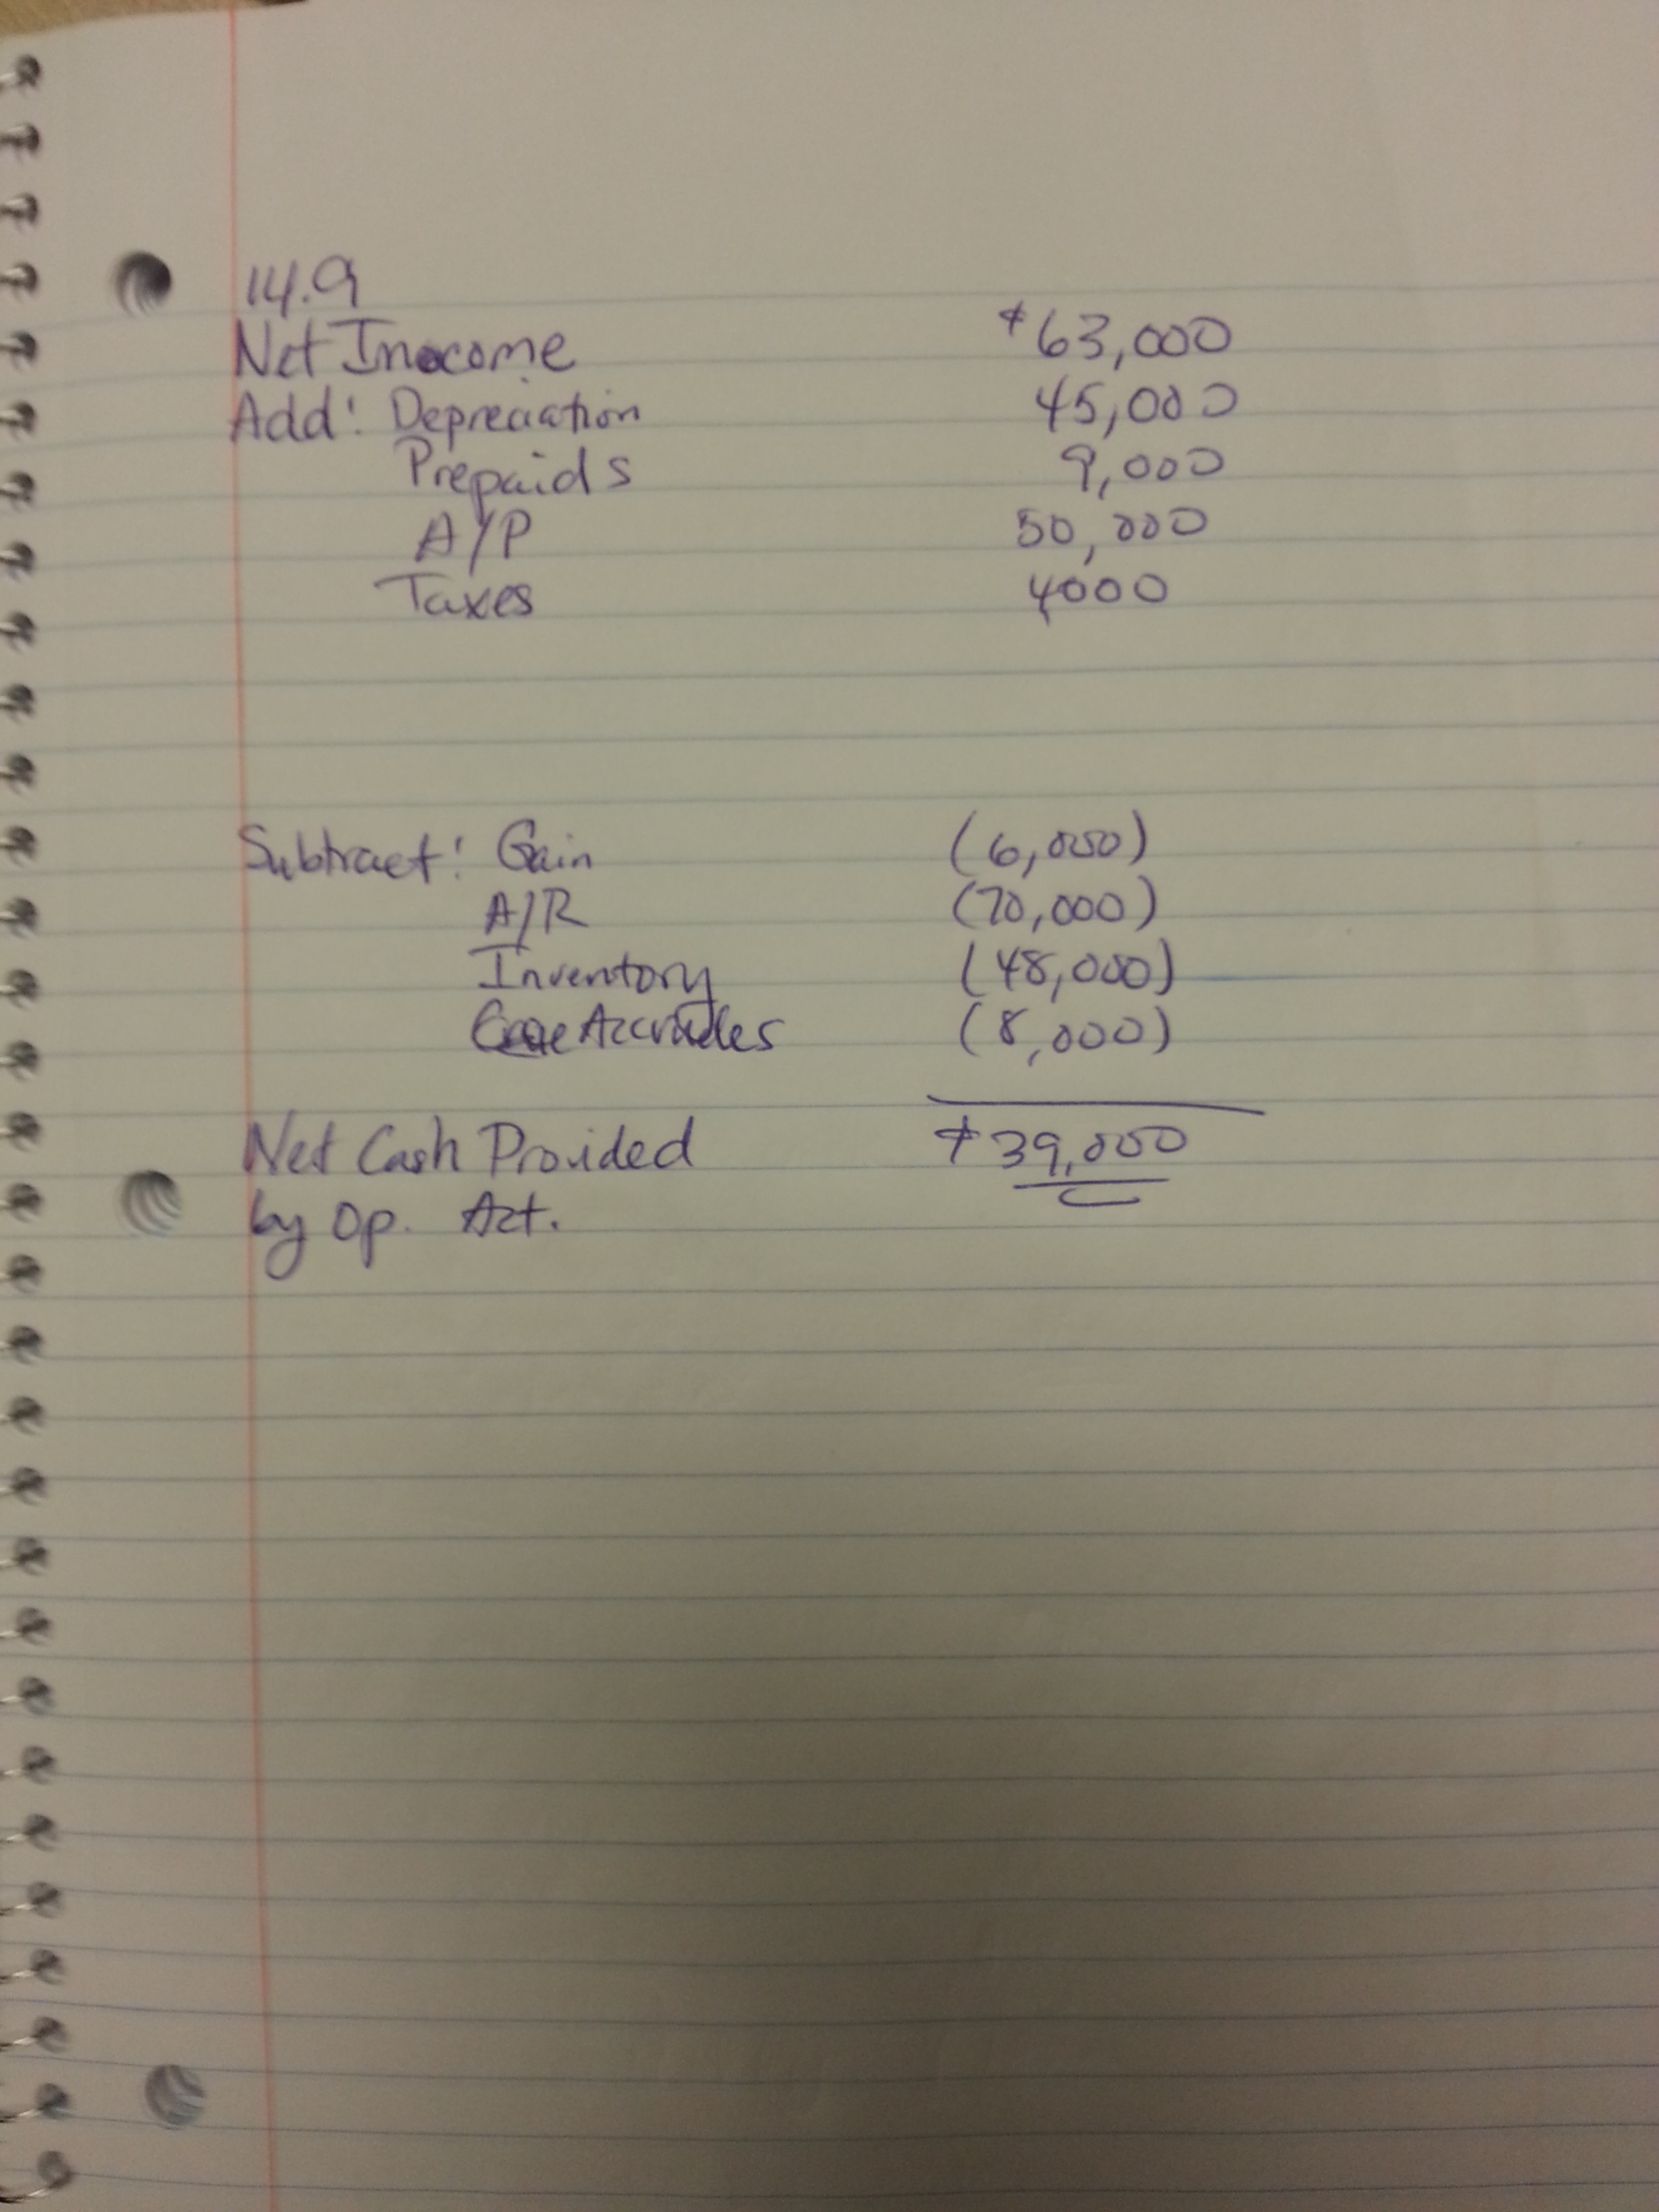 14.9
Net Inocome $63,000
Add: Depreciation 45,000
Prepaids 9,000
A/P 50,000
Taxes 4000
Subtract: Gain (6,000)
A/R (70,000)
Inventory (48,000)
(8,000)
Net Cash Provided $39,000
by Op. Act.